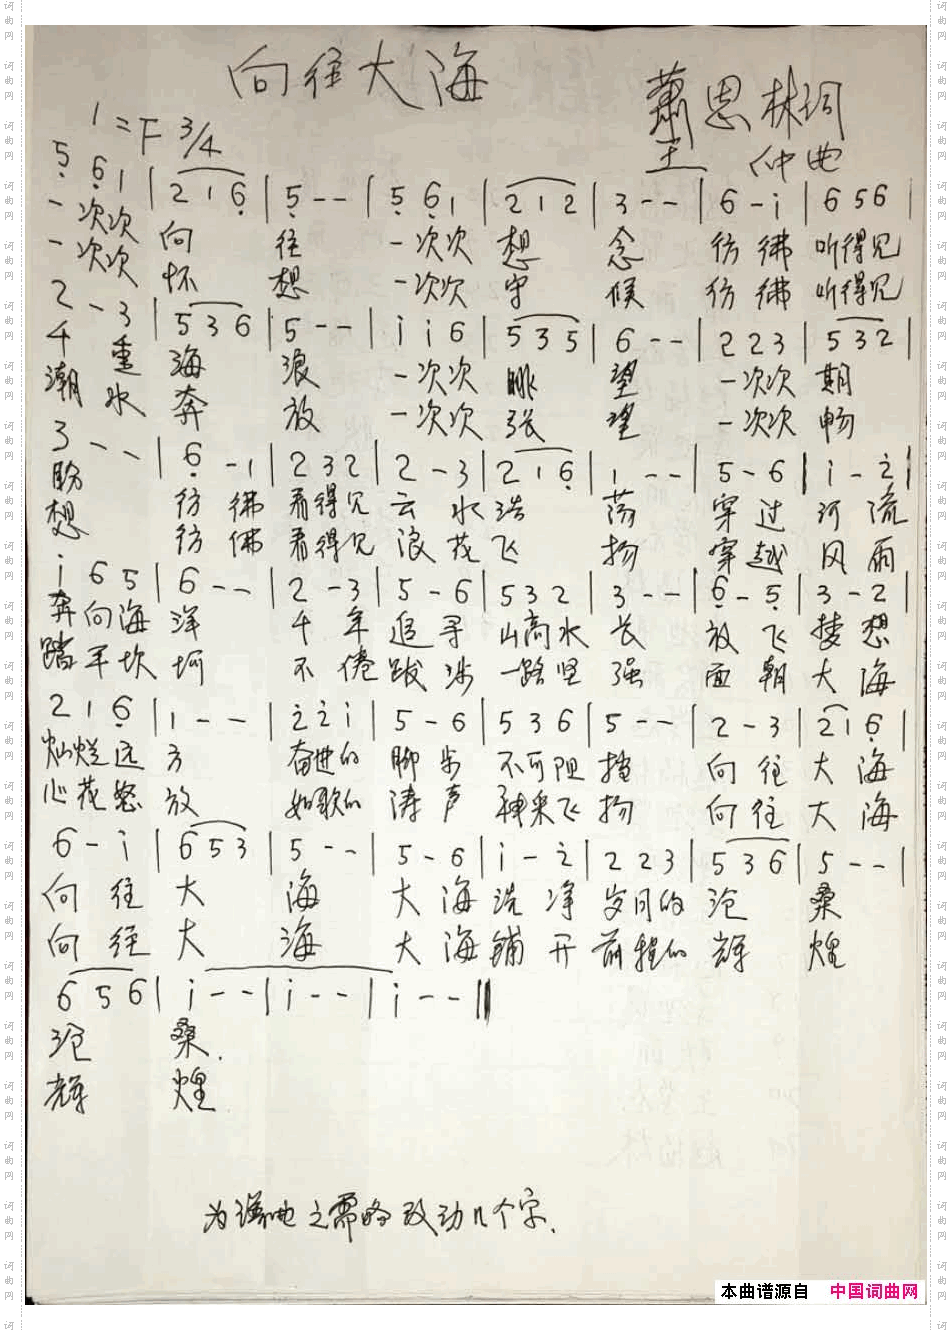 向往大海
萧恩林词
1=F 3/4
王 仲曲
5 6 1 | 2 1 6 | 5 - - | 5 6 1 | 2 1 2 | 3 - - | 6 - i | 6 5 6 |
一次次 向 往 一次次 想 念 彷 彿 听得见
一次次 怀 想 一次次 守 候 彷 彿 听得见
2 - 3 | 5 3 6 | 5 - - | i i 6 | 5 3 5 | 6 - - | 2 2 3 | 5 3 2 |
千 重 海 浪 一次次 眺 望 一次次 期
潮 水 奔 放 一次次 张 望 一次次 畅
3 - - | 6 - 1 | 2 3 2 | 2 - 3 | 2 1 6 | 1 - - | 5 - 6 | i - 2 |
盼 彷 彿 看得见 云 水 浩 荡 穿 过 河 流
想 彷 佛 看得见 浪 花 飞 扬 穿 越 风 雨
i 6 5 | 6 - - | 2 - 3 | 5 - 6 | 5 3 2 | 3 - - | 6 - 5 | 3 - 2 |
奔向海 洋 千 年 追 寻 山高水 长 放 飞 梦 想
踏平坎 坷 不 倦 跋 涉 一路坚 强 面 朝 大 海
2 1 6 | 1 - - | 2 2 i | 5 - 6 | 5 3 6 | 5 - - | 2 - 3 | 2 1 6 |
灿烂远 方 奋进的 脚 步 不可阻 挡 向 往 大 海
心花怒 放 如歌的 涛 声 神采飞 扬 向 往 大 海
6 - i | 6 5 3 | 5 - - | 5 - 6 | i - 2 | 2 2 3 | 5 3 6 | 5 - - |
向 往 大 海 大 海 洗 净 岁月的 沧 桑
向 往 大 海 大 海 铺 开 前程的 辉 煌
6 5 6 | i - - | i - - | i - - ‖
沧 桑.
辉 煌.
为谱曲之需略改动几个字.
本曲谱源自 中国词曲网